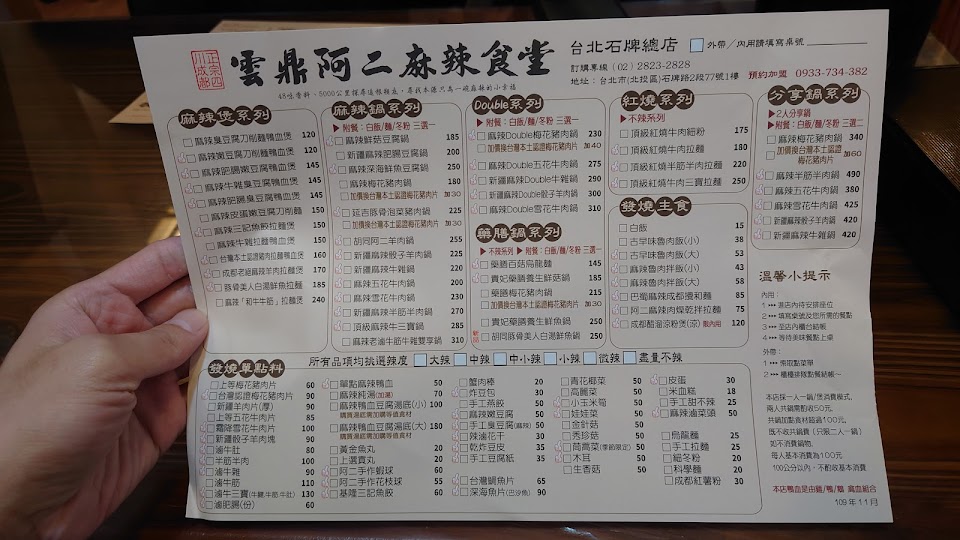 正宗四川成都
雲鼎阿二麻辣食堂
台北石牌總店
外帶／內用請填寫桌號
訂購專線 (02) 2823-2828
地址：台北市(北投區)石牌路2段77號1樓
預約加盟 0933-734-382
麻辣煲系列
麻辣臭豆腐刀削麵鴨血煲 120
麻辣嫩豆腐刀削麵鴨血煲 120
麻辣肥腸臭豆腐鴨血煲 145
麻辣牛雜臭豆腐鴨血煲 145
麻辣肥腸嫩豆腐鴨血煲 145
麻辣皮蛋嫩豆腐刀削麵 150
麻辣三記魚餃拉麵煲 150
麻辣牛雜拉麵鴨血煲 150
台灣本土認證豬肉拉麵鴨血煲 160
成都老媽麻辣羊肉拉麵煲 170
豚骨美人白湯鮮魚拉麵 180
麻辣「和牛牛筋」拉麵煲 240
麻辣鍋系列
附餐：白飯/麵/冬粉 三選一
麻辣鮮菇豆腐鍋 185
新疆麻辣肥腸豆腐鍋 200
麻辣深海鮮魚豆腐鍋 250
麻辣梅花豬肉鍋 180
加價換台灣本土認證梅花豬肉片 加30
延吉豚骨泡菜豬肉鍋 225
加價換台灣本土認證梅花豬肉片 加30
胡同阿二羊肉鍋 255
新疆麻辣骰子羊肉鍋 225
新疆麻辣牛雜鍋 220
麻辣五花牛肉鍋 200
麻辣雪花牛肉鍋 230
新疆麻辣半筋半肉鍋 270
頂級麻辣牛三寶鍋 285
麻辣老滷牛筋牛雜雙享鍋 310
Double系列
附餐：白飯/麵/冬粉 三選一
麻辣Double梅花豬肉鍋 230
加價換台灣本土認證梅花豬肉片 加40
麻辣Double五花牛肉鍋 275
新疆麻辣Double牛雜鍋 290
新疆麻辣Double骰子羊肉鍋 300
麻辣Double雪花牛肉鍋 310
藥膳鍋系列
不辣系列 附餐：白飯/麵/冬粉 三選一
藥膳百菇烏龍麵 145
貴妃藥膳養生鮮菇鍋 185
藥膳梅花豬肉鍋 215
加價換台灣本土認證梅花豬肉片 加30
貴妃藥膳養生鮮魚鍋 250
胡同豚骨美人白湯鮮魚鍋 250
紅燒系列
不辣系列
頂級紅燒牛肉細粉 175
頂級紅燒牛肉拉麵 180
頂級紅燒半筋半肉拉麵 220
頂級紅燒牛肉三寶拉麵 250
發燒主食
白飯 15
古早味魯肉飯(小) 38
古早味魯肉飯(大) 53
麻辣魯肉拌飯(小) 43
麻辣魯肉拌飯(大) 58
巴蜀麻辣成都擔和麵 85
阿二麻辣肉燥乾拌拉麵 75
成都酷溜涼粉煲(涼) 限內用 120
分享鍋系列
2人分享鍋
附餐：白飯/麵/冬粉 三選二
麻辣梅花豬肉鍋 340
加價換台灣本土認證梅花豬肉片 加60
麻辣半筋半肉鍋 490
麻辣五花牛肉鍋 380
麻辣雪花牛肉鍋 425
新疆麻辣骰子羊肉鍋 420
新疆麻辣牛雜鍋 420
溫馨小提示
內用：
1 進店內待安排座位
2 填寫桌號及您所需的餐點
3 至店內櫃台結帳
4 等待美味餐點上桌
外帶：
1 索取點菜單
2 櫃檯排隊點餐結帳～
本店採一人一鍋/煲消費模式，
兩人共鍋需酌收50元。
共鍋加點食材超過100元，
既不收共鍋費 (只限二人一鍋)
如不消費鍋物，
每人基本消費為100元
100公分以內，不酌收基本消費
本店鴨血是由雞/鴨/鵝 禽血組合
109年11月
發燒單點料
所有品項均挑選辣度 大辣 中辣 中小辣 小辣 微辣 盡量不辣
上等梅花豬肉片 60
台灣認證梅花豬肉片 90
新疆羊肉片(厚) 90
上等五花牛肉片 85
霜降雪花牛肉片 100
新疆骰子羊肉塊 90
滷牛肚 80
半筋半肉 100
滷牛雜 90
滷牛筋 110
滷牛三寶(牛腱.牛筋.牛肚) 130
滷肥腸(份) 60
單點麻辣鴨血 50
麻辣純湯(加湯) 70
麻辣鴨血豆腐湯底(小) 100
購買湯底需加購等值食材
麻辣鴨血豆腐湯底(大) 180
購買湯底需加購等值食材
黃金魚丸 20
上選貢丸 20
阿二手作蝦球 60
阿二手作花枝球 55
基隆三記魚餃 60
蟹肉棒 20
炸豆包 30
手工蒸餃 50
麻辣嫩豆腐 50
手工臭豆腐(麻辣) 50
辣滷花干 30
乾炸豆皮 35
手工豆腐紙 35
台灣鯛魚片 65
深海魚片(巴沙魚) 90
青花椰菜 50
高麗菜 50
小玉米筍 50
娃娃菜 50
金針菇 50
秀珍菇 50
茼蒿(季節限定) 50
木耳 50
生香菇 50
皮蛋 30
米血糕 18
手工甜不辣 25
麻辣滷菜頭 50
烏龍麵 25
手工拉麵 25
細冬粉 20
科學麵 20
成都紅薯粉 30